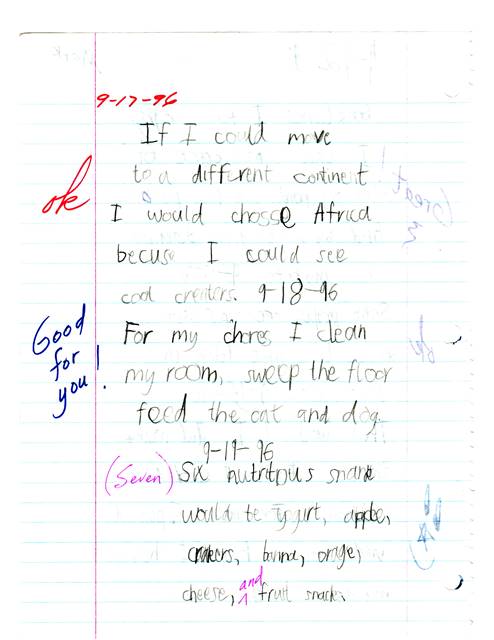 9-17-96
If I could move
to a different continent
ok
I would chosse Africa
o
becuse I could see
cool creaters. 9-18-96
Good for you!
For my chores I clean
my room, sweep the floor
feed the cat and dog
9-19-96
(Seven) Six nutritous snack
would be yogurt, apple,
crakers, banna, orage,
cheese, and fruit snack.
Great
ok